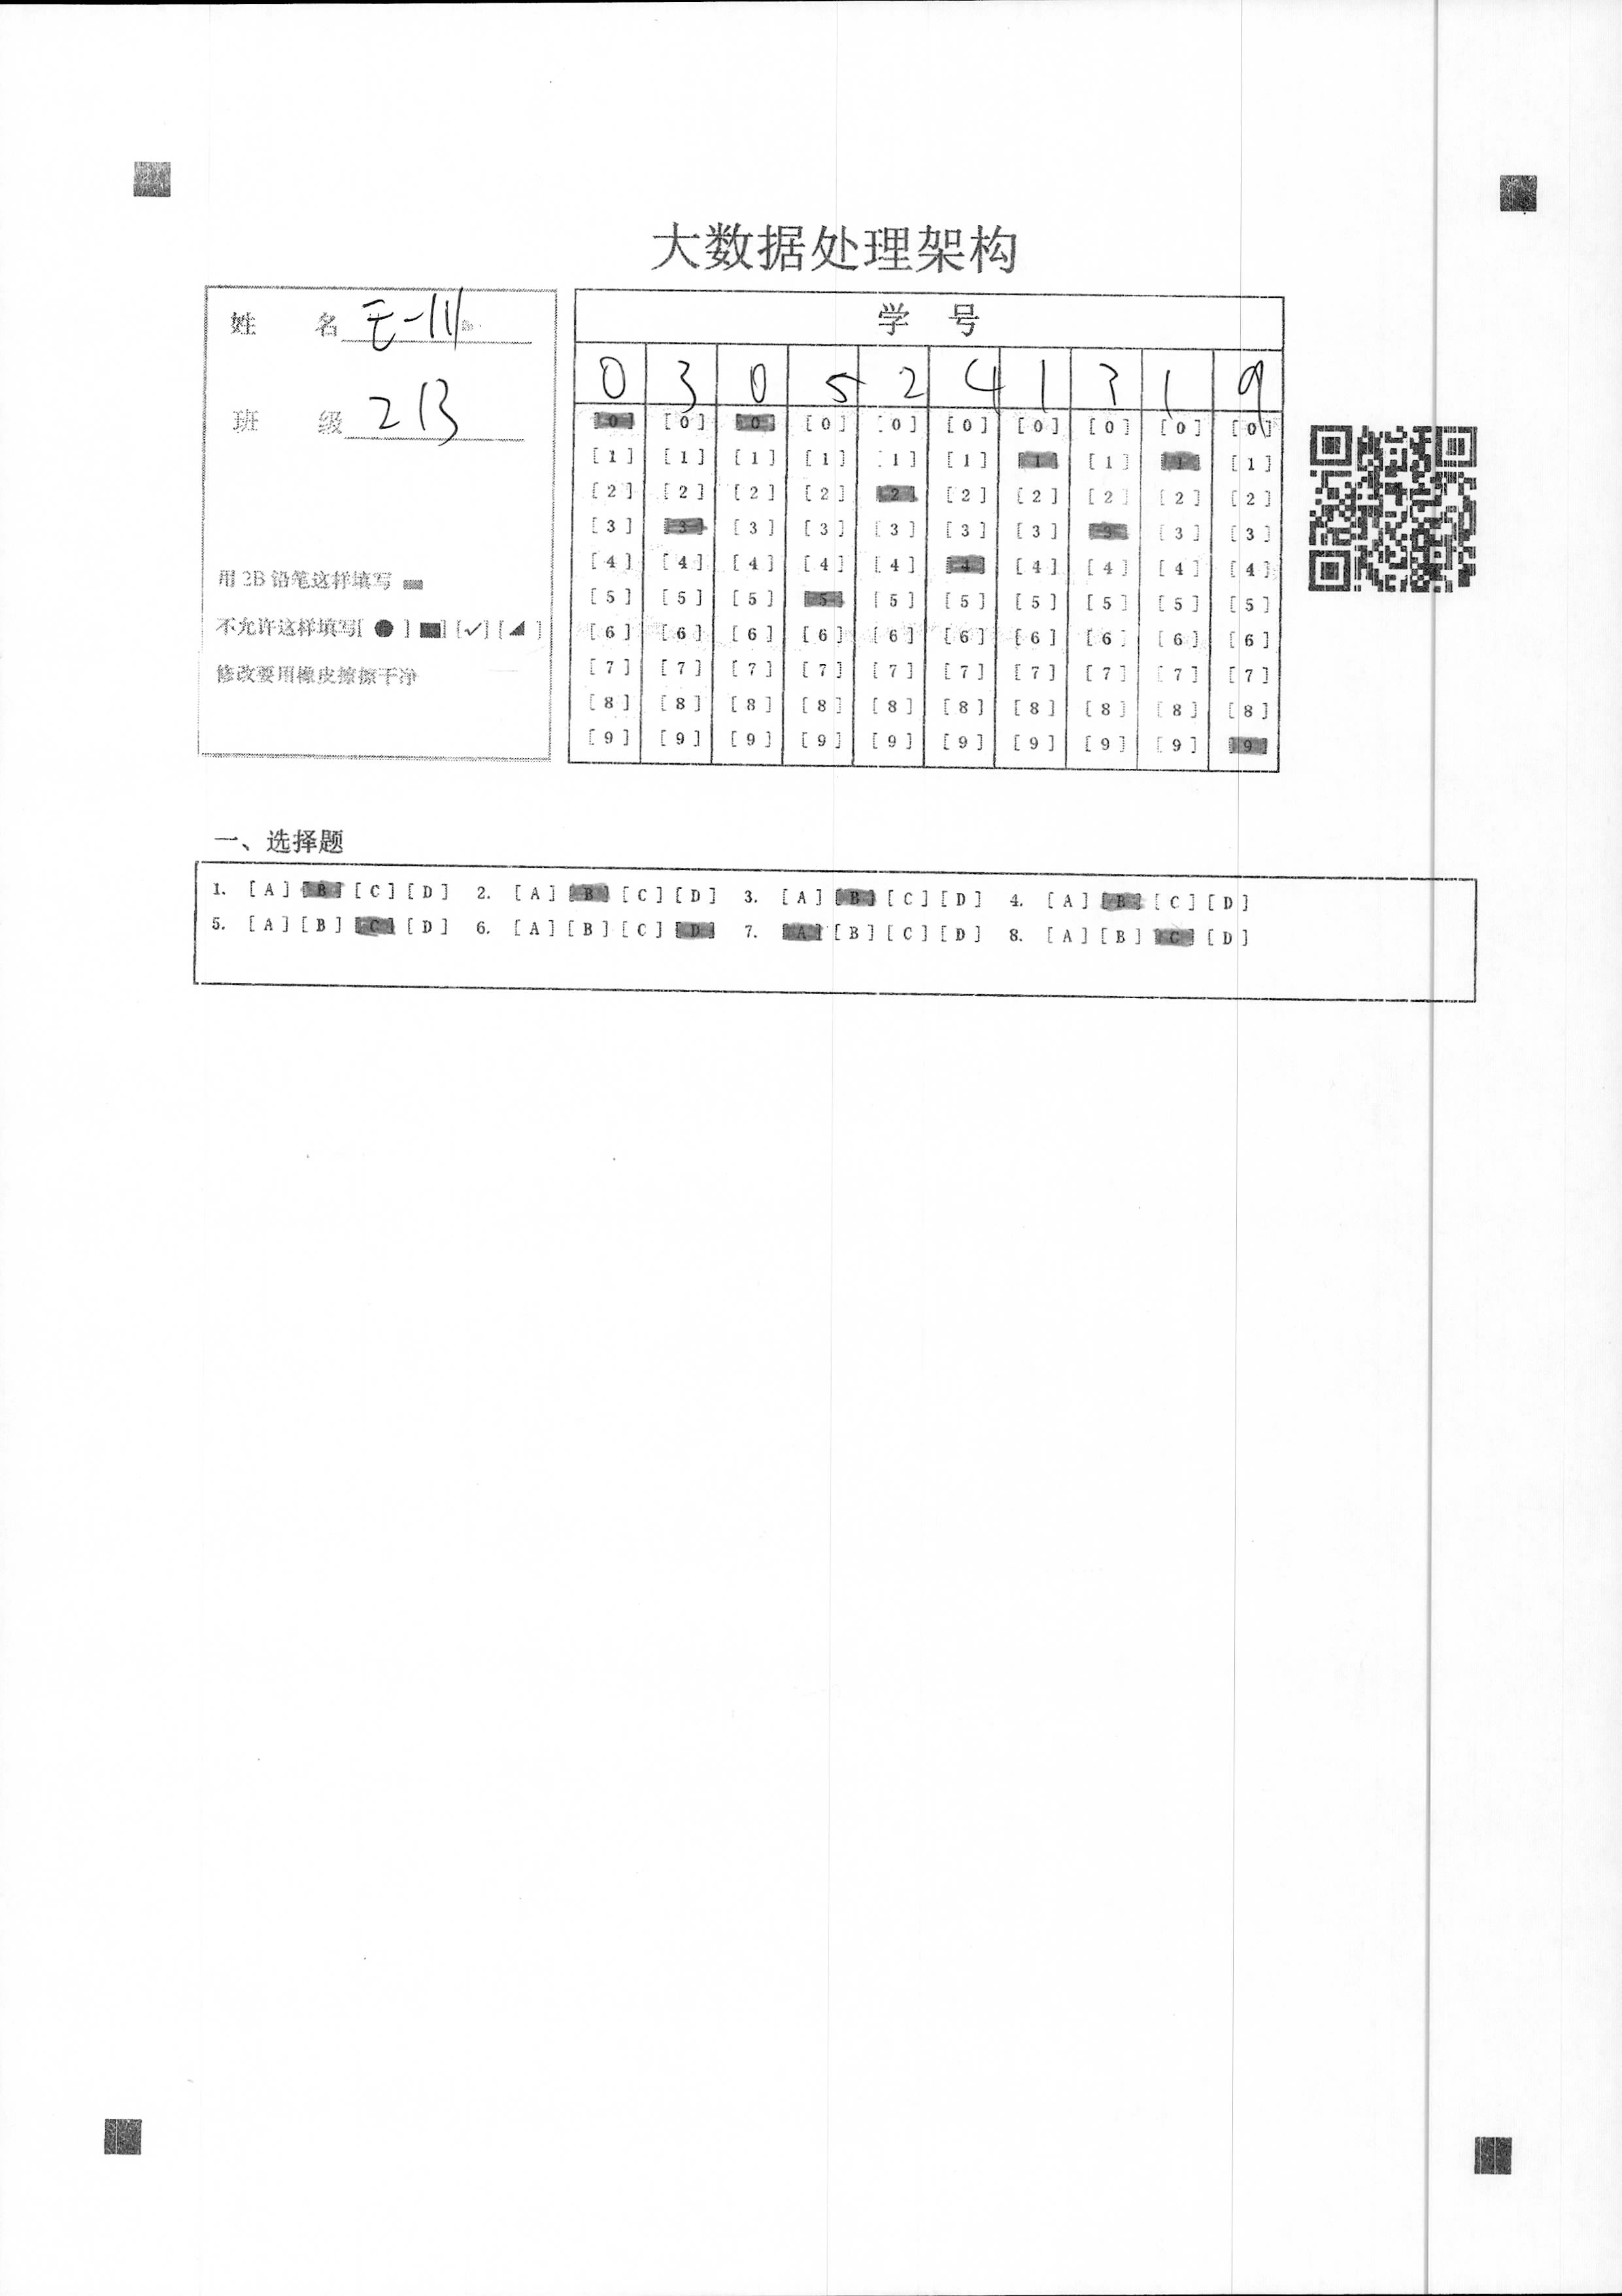 大数据处理架构
姓 名
班 级 213
用 2B 铅笔这样填写
不允许这样填写[ ● ] [■] [✓] [◢ ]
修改要用橡皮擦擦干净
学 号
0 3 0 5 2 4 1 3 1 9
[0] [0] [0] [0] [0] [0] [0] [0] [0] [0]
[1] [1] [1] [1] [1] [1] [1] [1] [1] [1]
[2] [2] [2] [2] [2] [2] [2] [2] [2] [2]
[3] [3] [3] [3] [3] [3] [3] [3] [3] [3]
[4] [4] [4] [4] [4] [4] [4] [4] [4] [4]
[5] [5] [5] [5] [5] [5] [5] [5] [5] [5]
[6] [6] [6] [6] [6] [6] [6] [6] [6] [6]
[7] [7] [7] [7] [7] [7] [7] [7] [7] [7]
[8] [8] [8] [8] [8] [8] [8] [8] [8] [8]
[9] [9] [9] [9] [9] [9] [9] [9] [9] [9]
一、选择题
1. [A] [B] [C] [D] 2. [A] [B] [C] [D] 3. [A] [B] [C] [D] 4. [A] [B] [C] [D]
5. [A] [B] [C] [D] 6. [A] [B] [C] [D] 7. [A] [B] [C] [D] 8. [A] [B] [C] [D]